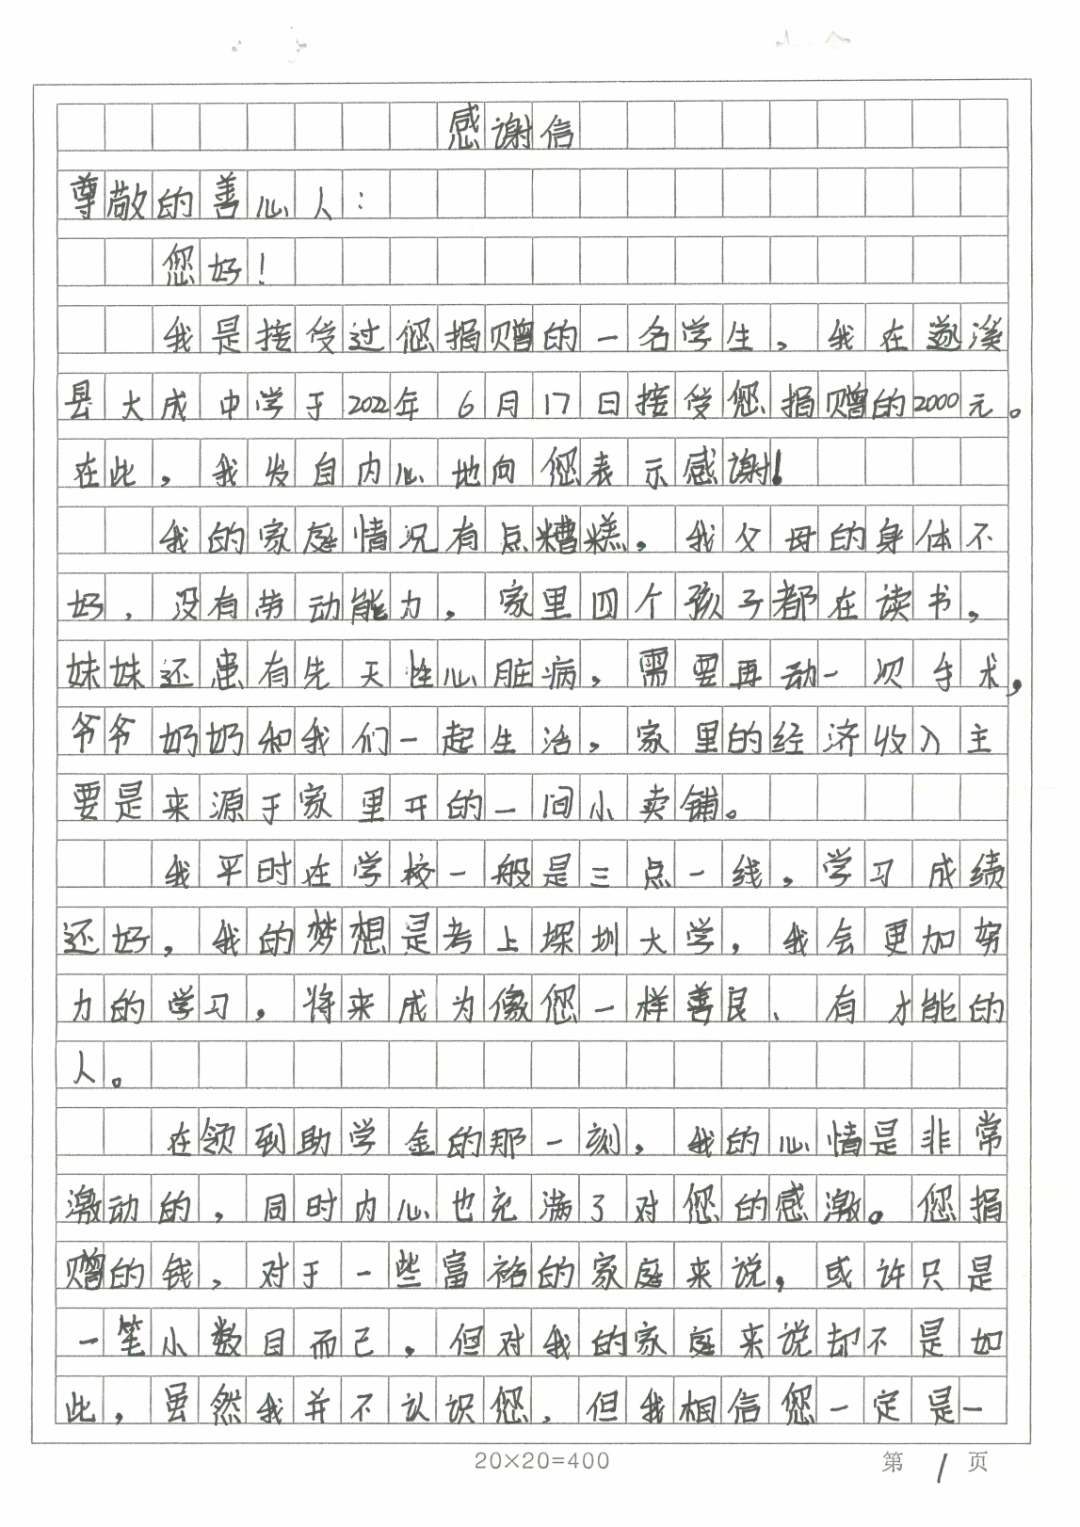 感谢信
尊敬的善心人：
您好！
我是接受过您捐赠的一名学生，我在遂溪
县大成中学于2022年6月17日接受您捐赠的2000元。
在此，我发自内心地向您表示感谢！
我的家庭情况有点糟糕，我父母的身体不
好，没有劳动能力，家里四个孩子都在读书，
妹妹还患有先天性心脏病，需要再动一次手术，
爷爷奶奶和我们一起生活，家里的经济收入主
要是来源于家里开的一间小卖铺。
我平时在学校一般是三点一线，学习成绩
还好，我的梦想是考上深圳大学，我会更加努
力的学习，将来成为像您一样善良、有才能的
人。
在领到助学金的那一刻，我的心情是非常
激动的，同时内心也充满了对您的感激。您捐
赠的钱，对于一些富裕的家庭来说，或许只是
一笔小数目而已，但对我的家庭来说却不是如
此，虽然我并不认识您，但我相信您一定是一
20×20=400
第1页